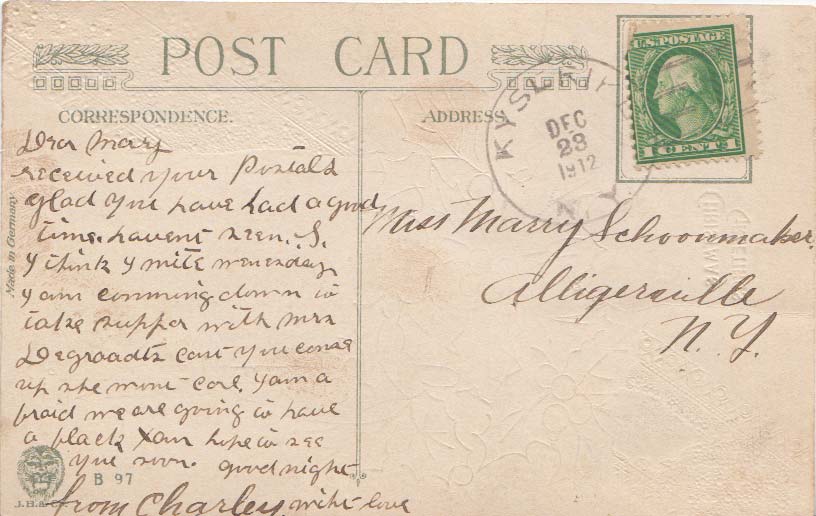 POST CARD
CORRESPONDENCE.
ADDRESS
U.S. POSTAGE
1 CENT 1
KYSERIKE
DEC
23
1912
N.Y.
Dear Mary
received your Postals
glad you have had a good
time. havent seen. S.
y think y mite wenesday
y am comming down to
take supper with mrs
Degroadts cant you come
up she wont care. y am a
fraid we are going to have
a black xam hope to see
you soon. good night
from Charley. with love
Miss Marry Schoonmaker.
Alligerville
N.Y.
Made in Germany
B 97
J.H.& Co.